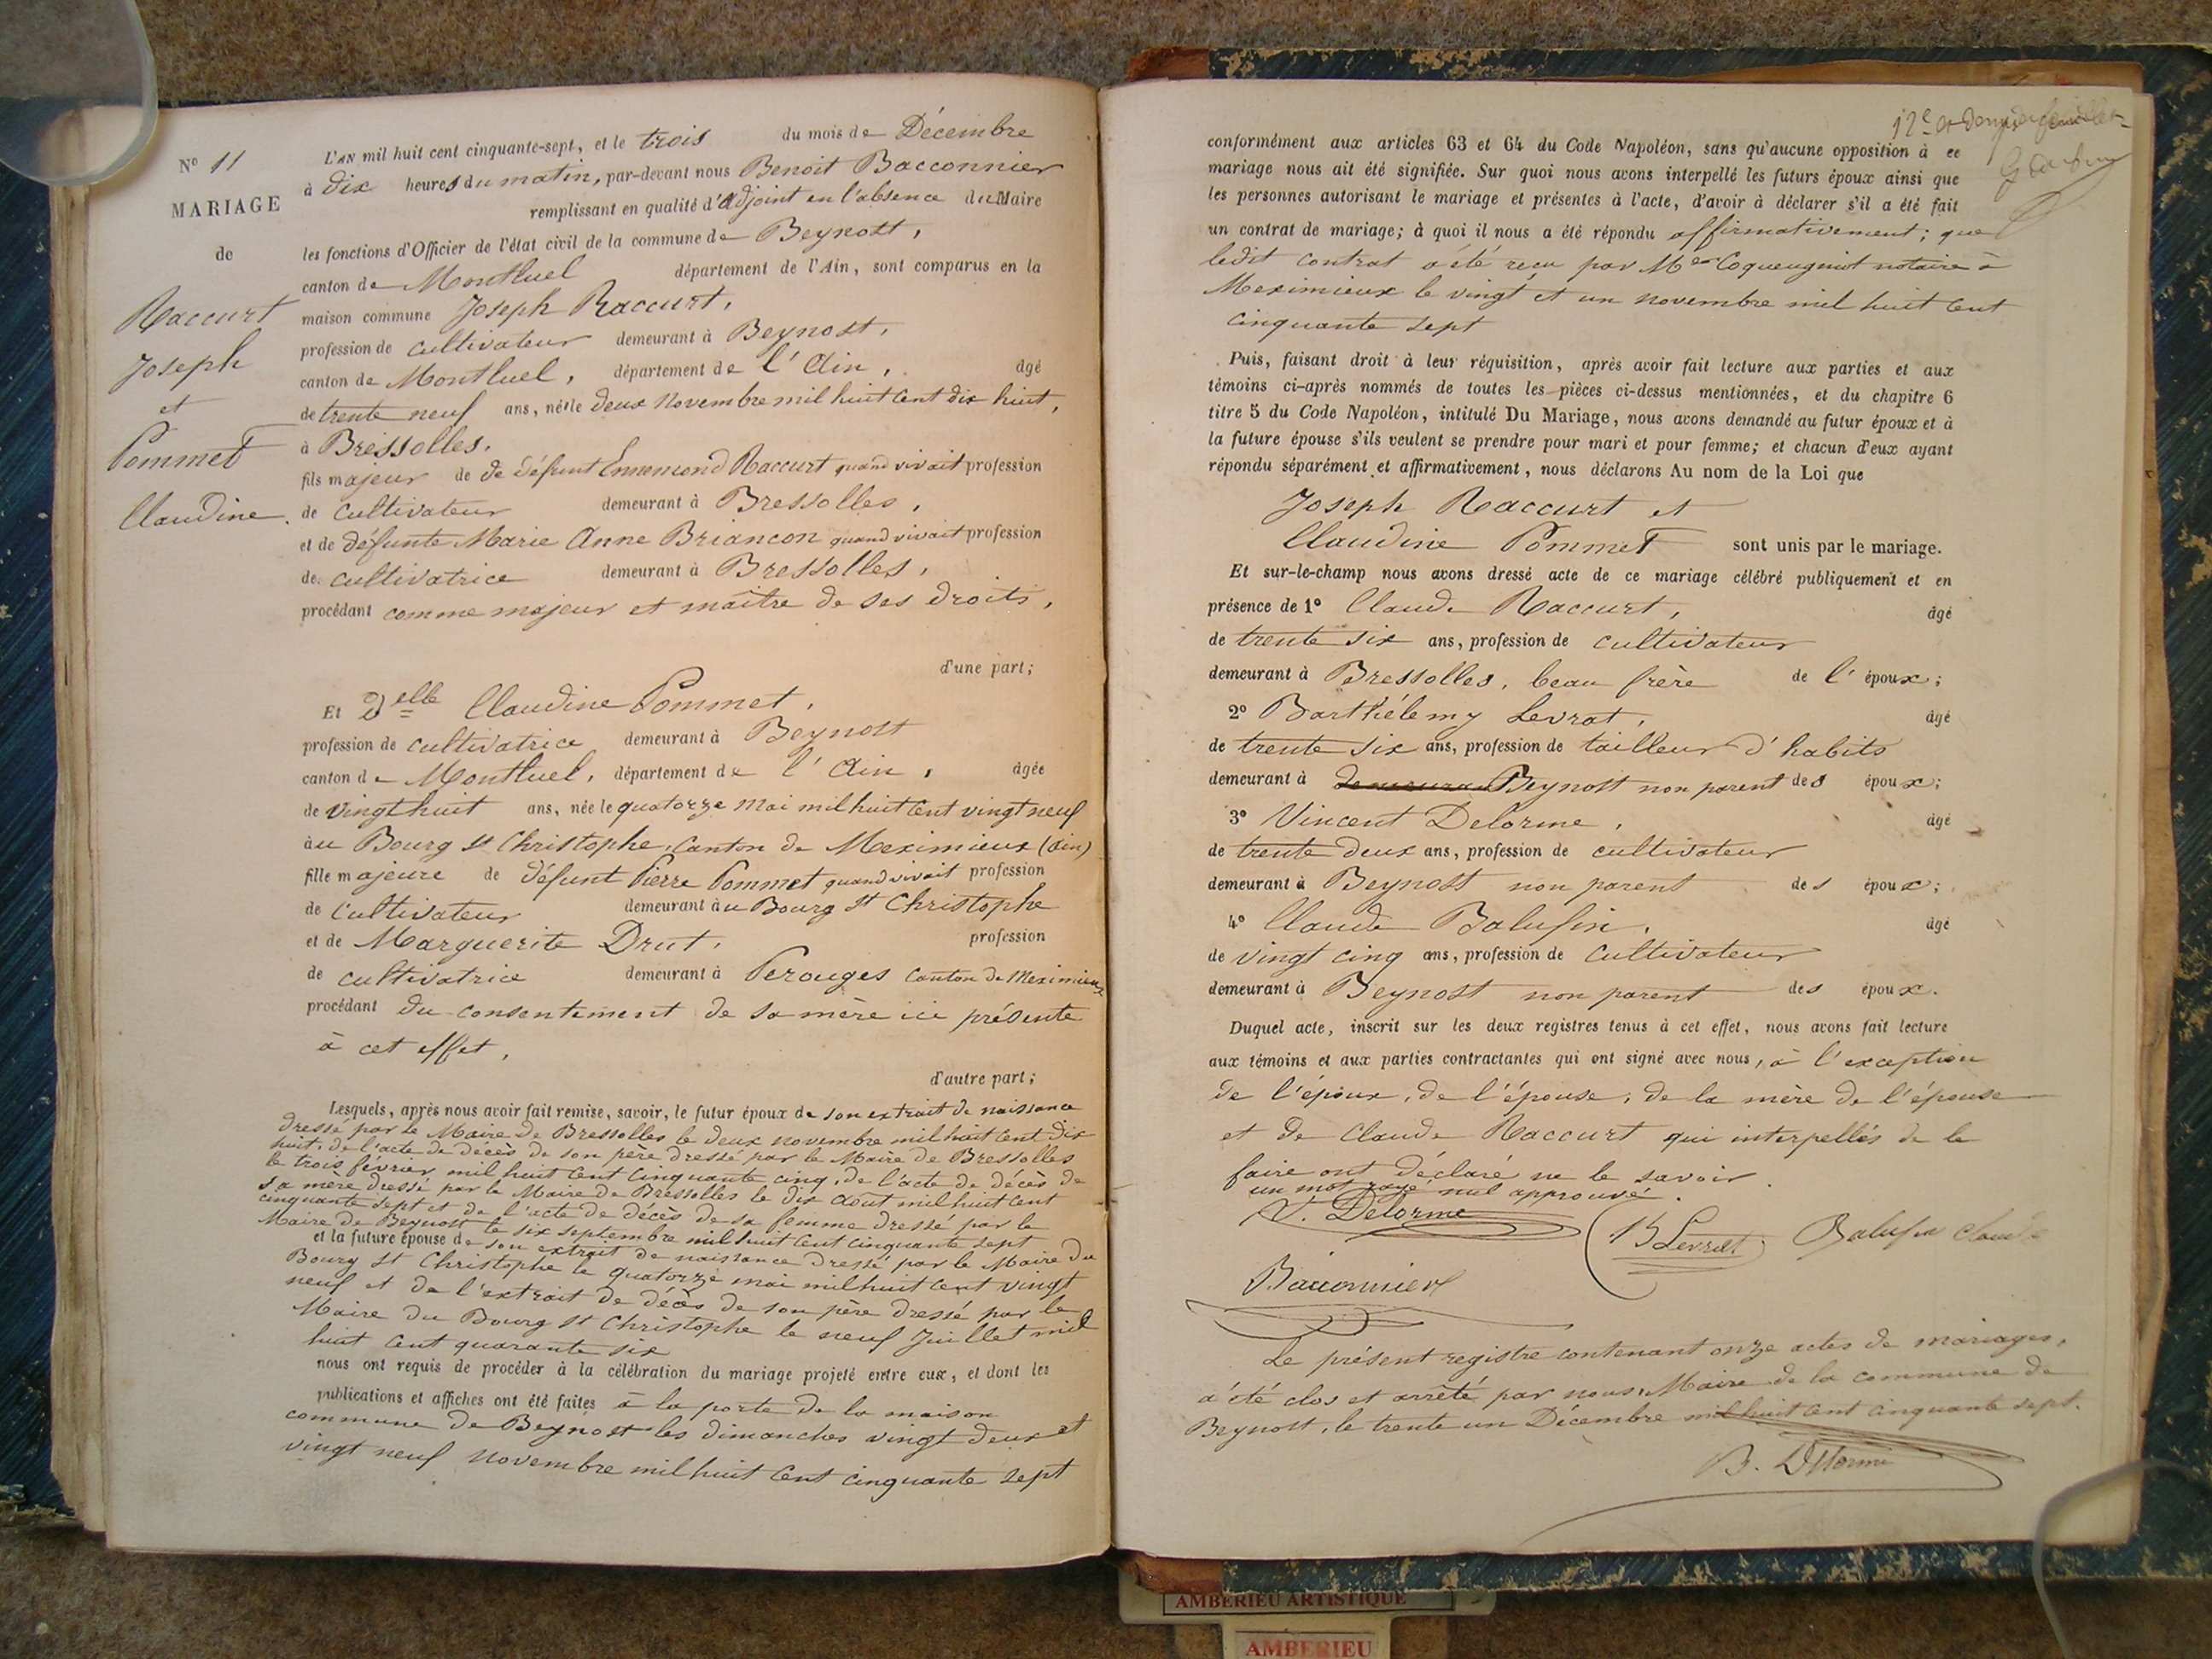 N° 11
MARIAGE
de
Raccurt
Joseph
et
Pommet
Claudine.
L'AN mil huit cent cinquante-sept, et le trois du mois de Décembre
à dix heures du matin, par-devant nous Benoit Bacconnier
remplissant en qualité d'adjoint en l'absence du Maire
les fonctions d'Officier de l'état civil de la commune de Beynost,
canton de Montluel département de l'Ain, sont comparus en la
maison commune Joseph Raccurt,
profession de cultivateur demeurant à Beynost,
canton de Montluel, département de l'Ain, âgé
de trente neuf ans, né le deux Novembre mil huit cent dix huit,
à Bressolles.
fils majeur de de défunt Ennemond Raccurt quand vivait profession
de cultivateur demeurant à Bressolles,
et de défunte Marie Anne Briancon quand vivait profession
de cultivatrice demeurant à Bressolles,
procédant comme majeur et maître de ses droits,
d'une part;
Et Delle Claudine Pommet,
profession de cultivatrice demeurant à Beynost
canton de Montluel, département de l'Ain, âgée
de vingt huit ans, née le quatorze mai mil huit cent vingt neuf
au Bourg St Christophe, canton de Meximieux (Ain)
fille majeure de défunt Pierre Pommet quand vivait profession
de cultivateur demeurant au Bourg St Christophe
et de Marguerite Drut, profession
de cultivatrice demeurant à Perouges canton de Meximieux
procédant du consentement de sa mère ici présente
à cet effet,
d'autre part;
Lesquels, après nous avoir fait remise, savoir, le futur époux de son extrait de naissance
dressé par le Maire de Bressolles le deux novembre mil huit cent dix
huit, de l'acte de décès de son père dressé par le Maire de Bressolles
le trois février mil huit cent cinquante cinq, de l'acte de décès de
sa mère dressé par le Maire de Bressolles le dix août mil huit cent
cinquante sept et de l'acte de décès de sa femme dressé par le
Maire de Beynost le six septembre mil huit cent cinquante sept
et la future épouse de son extrait de naissance dressé par le Maire du
Bourg St Christophe le quatorze mai mil huit cent vingt
neuf et de l'extrait de décès de son père dressé par le
Maire du Bourg St Christophe le neuf Juillet mil
huit cent quarante six
nous ont requis de procéder à la célébration du mariage projeté entre eux, et dont les
publications et affiches ont été faites à la porte de la maison
commune de Beynost les dimanches vingt deux et
vingt neuf Novembre mil huit cent cinquante sept
12e et dernier feuillet
conformément aux articles 63 et 64 du Code Napoléon, sans qu'aucune opposition à ce
mariage nous ait été signifiée. Sur quoi nous avons interpellé les futurs époux ainsi que
les personnes autorisant le mariage et présentes à l'acte, d'avoir à déclarer s'il a été fait
un contrat de mariage; à quoi il nous a été répondu affirmativement; que
ledit contrat a été reçu par Me Coqueugniot notaire à
Meximieux le vingt et un novembre mil huit cent
cinquante sept
Puis, faisant droit à leur réquisition, après avoir fait lecture aux parties et aux
témoins ci-après nommés de toutes les pièces ci-dessus mentionnées, et du chapitre 6
titre 5 du Code Napoléon, intitulé Du Mariage, nous avons demandé au futur époux et à
la future épouse s'ils veulent se prendre pour mari et pour femme; et chacun d'eux ayant
répondu séparément et affirmativement, nous déclarons Au nom de la Loi que
Joseph Raccurt et
Claudine Pommet sont unis par le mariage.
Et sur-le-champ nous avons dressé acte de ce mariage célébré publiquement et en
présence de 1° Claude Raccurt, âgé
de trente six ans, profession de cultivateur
demeurant à Bressolles, beau frère de l'époux;
2° Barthélemy Levrat, âgé
de trente six ans, profession de tailleur d'habits
demeurant à Beynost non parent des époux;
3° Vincent Delorme, âgé
de trente deux ans, profession de cultivateur
demeurant à Beynost non parent des époux;
4° Claude Balufin, âgé
de vingt cinq ans, profession de cultivateur
demeurant à Beynost non parent des époux.
Duquel acte, inscrit sur les deux registres tenus à cet effet, nous avons fait lecture
aux témoins et aux parties contractantes qui ont signé avec nous, à l'exception
de l'époux, de l'épouse, de la mère de l'épouse
et de Claude Raccurt qui interpellés de le
faire ont déclaré ne le savoir.
un mot rayé nul approuvé.
V. Delorme
B Levrat Balufin Claude
Bacconnier
Le présent registre contenant onze actes de mariages,
a été clos et arrêté par nous, Maire de la commune de
Beynost, le trente un Décembre mil huit cent cinquante sept.
B. Delorme
AMBERIEU ARTISTIQUE
AMBERIEU